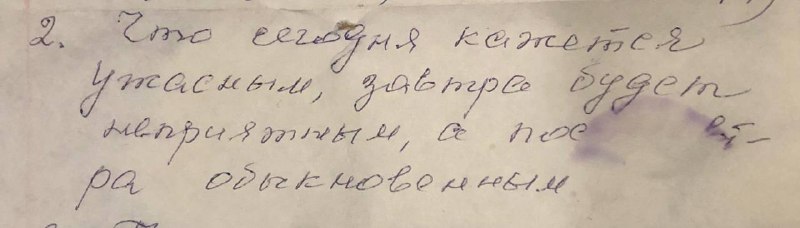 2. Что сегодня кажется
ужасным, завтра будет
неприятным, а
ра обыкновенным